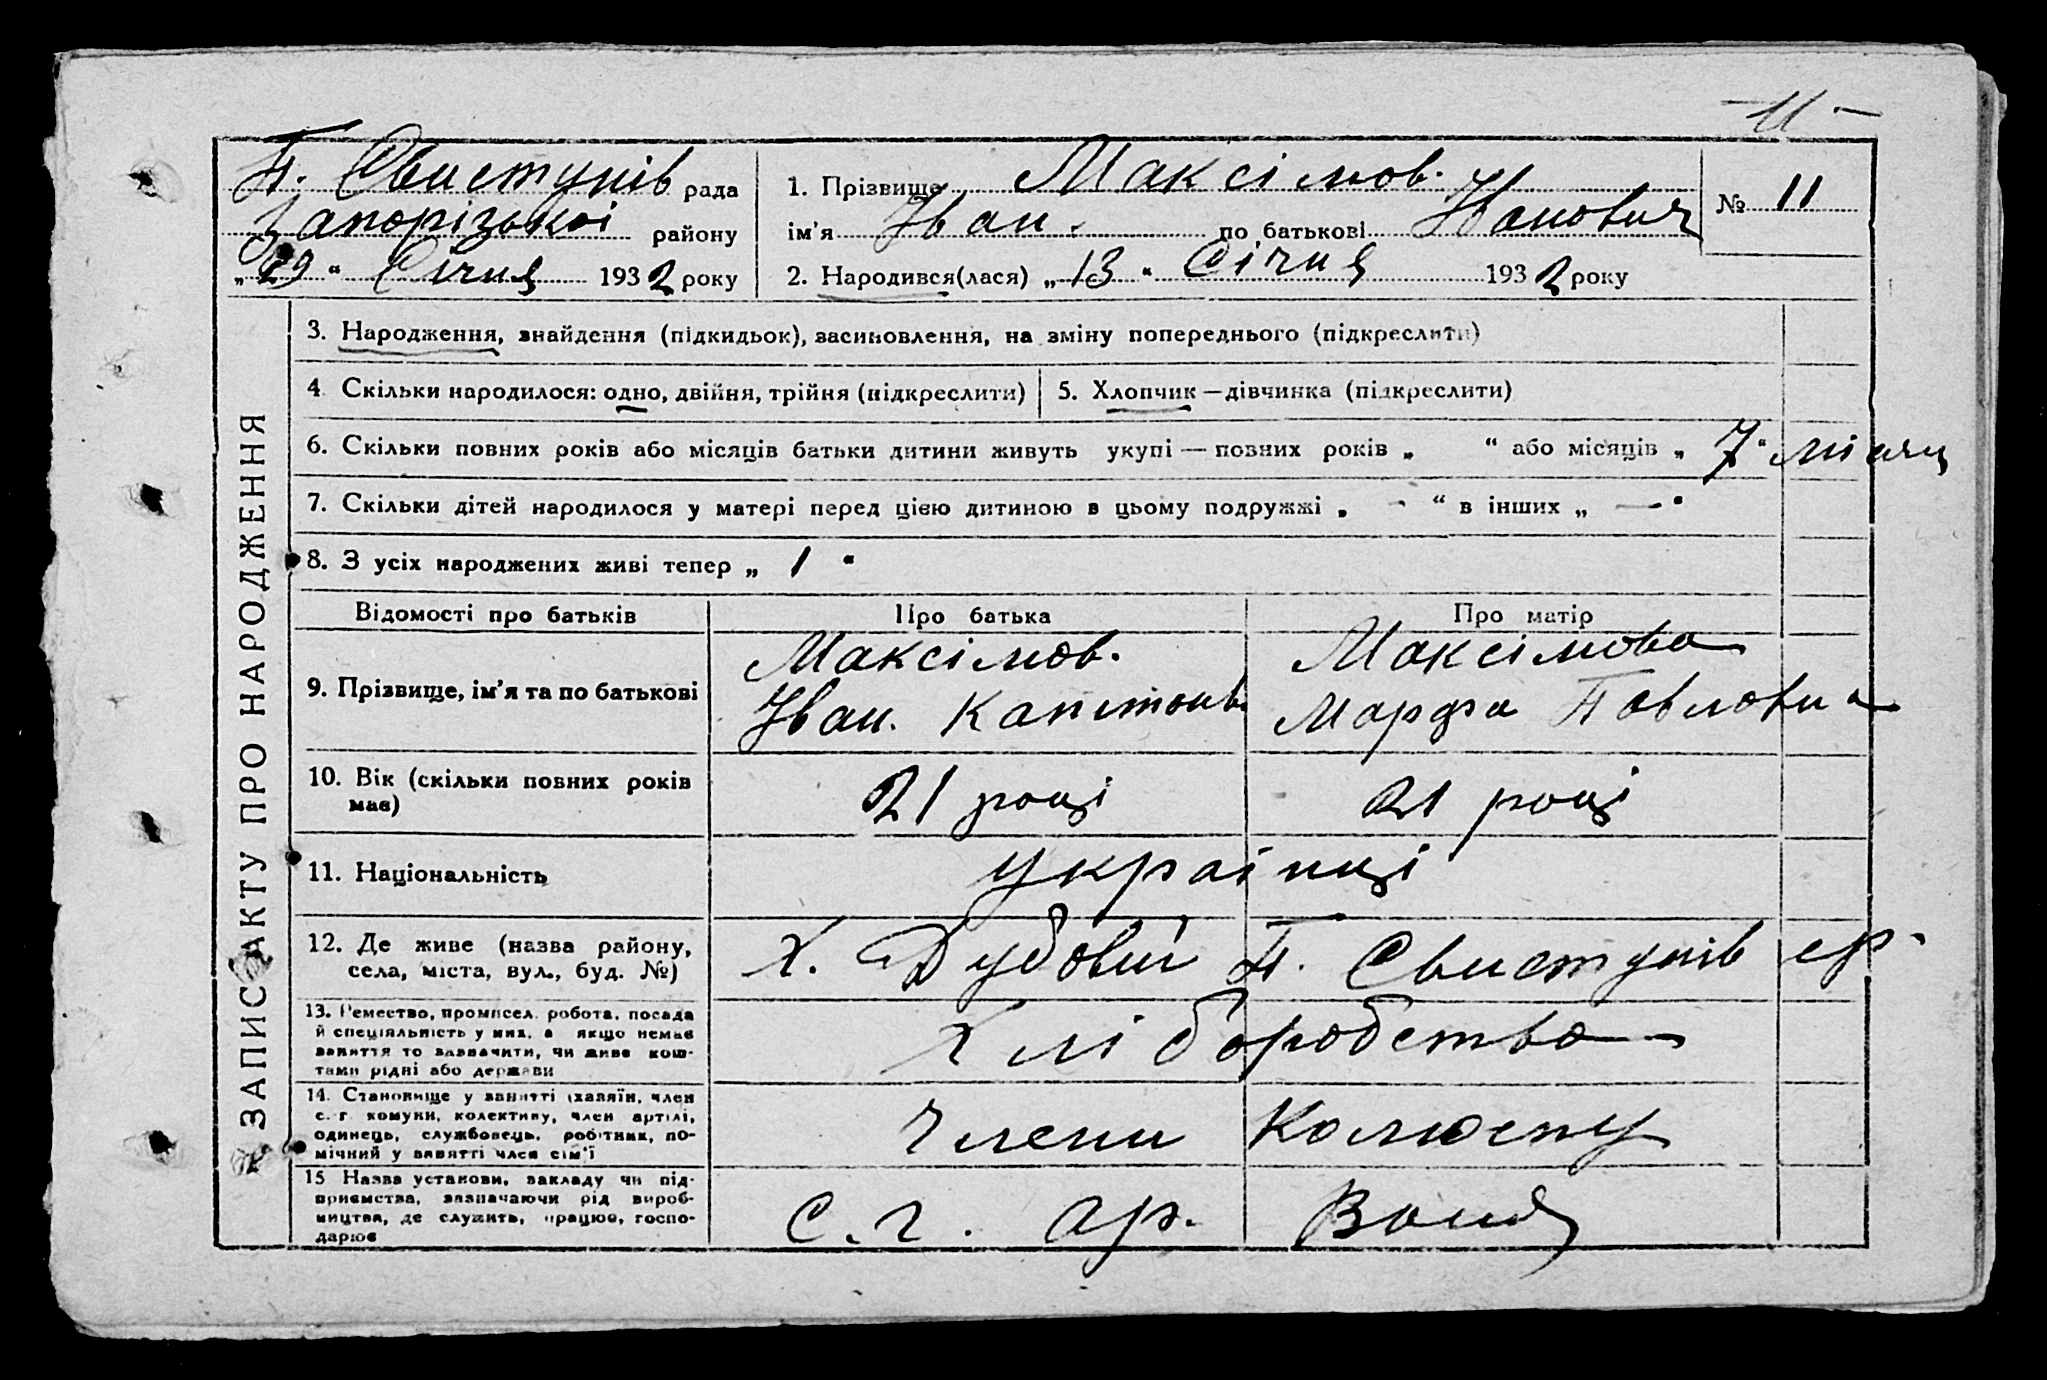 11
П. Свистунів рада
Запорізької району
„ 29 “ Січня 1932 року
1. Прізвище Максімов.
ім'я Іван. по батькові Іванович
2. Народився(лася) „ 13 “ Січня 1932 року
№ 11
ЗАПИС АКТУ ПРО НАРОДЖЕННЯ
3. Народження, знайдення (підкидьок), засиновлення, на зміну попереднього (підкреслити)
4. Скільки народилося: одно, двійня, трійня (підкреслити)
5. Хлопчик — дівчинка (підкреслити)
6. Скільки повних років або місяців батьки дитини живуть укупі — повних років „ “ або місяців „ 7 “ місяц
7. Скільки дітей народилося у матері перед цією дитиною в цьому подружжі „ - “ в інших „ — “
8. З усіх народжених живі тепер „ 1 “
Відомості про батьків Про батька Про матір
9. Прізвище, ім'я та по батькові
Максімов. Максімова
Іван. Капітонів Марфа Павловна
10. Вік (скільки повних років
має)
21 році 21 році
11. Національність українці
12. Де живе (назва району,
села, міста, вул., буд. №)
Х. Дубовий П. Свистунів ср.
13. Ремество, промисел, робота, посада
й спеціяльність у них, а якщо немає
заняття то зазначити, чи живе кош-
тами рідні або держави
Хліборобство
14. Становище у занятті (хазяїн, член
с.-г. комуни, колективу, член артілі,
одинець, службовець, робітник, по-
мічний у занятті член сім'ї
Члени Колгоспу
15. Назва установи, закладу чи під-
приємства, зазначаючи рід вироб-
ництва, де служить, працює, госпо-
дарює
С. г. ар.